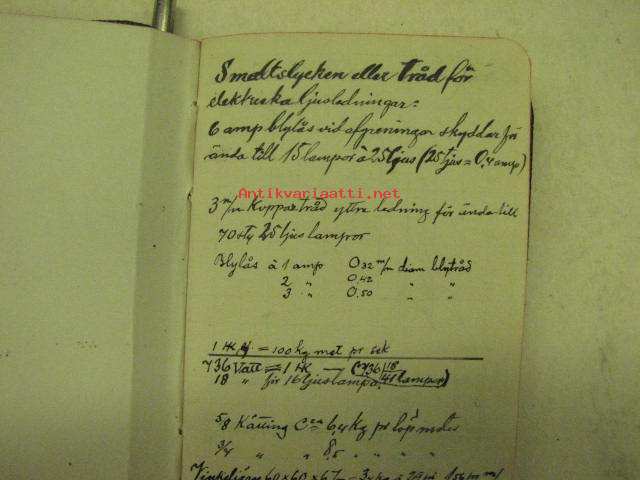 Smältstycken eller tråd för
elektriska ljusledningar:
6 amp blylås vid afgreningar skyddar för
ända till 15 lampor à 25 ljus (25 ljus = 0,4 amp)
Antikvariaatti.net
3 m/m Koppartråd yttre ledning för ända till
70 st 25 ljus lampor
Blylås à 1 amp 0,32 m/m diam blytråd
2 " 0,42 " "
3 " 0,50 " "
1 HK = 100 kg met pr sek
736 Vatt = 1 HK — (736/18
18 " för 16 ljuslampa, 41 lampor)
5/8 Kätting Ca 6,4 kg pr löp meter
3/4 " " 8,5 " " "
Vinkeljärn 60 x 60 x